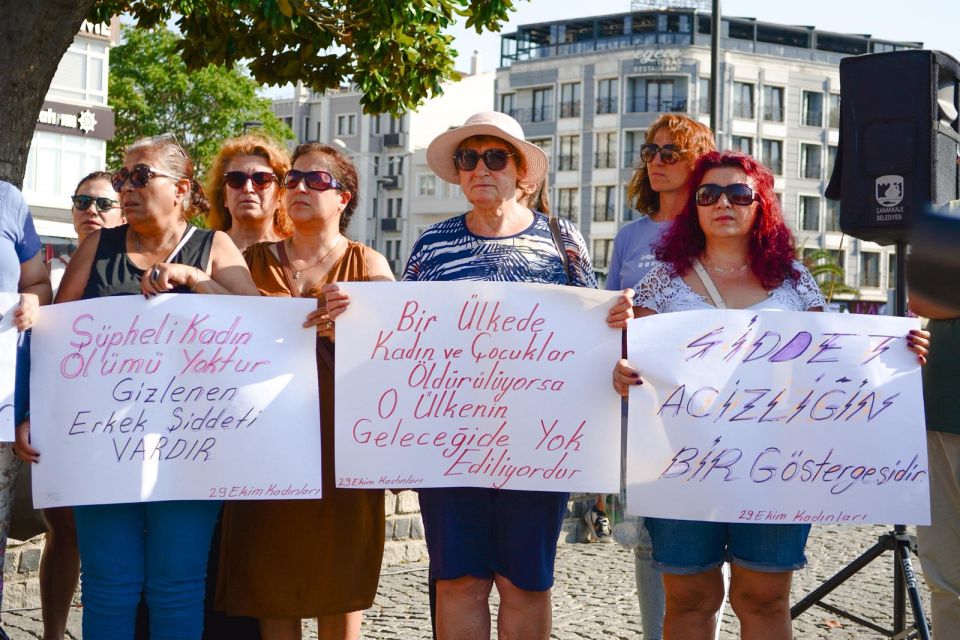 Şüpheli Kadın
Ölümü Yoktur
Gizlenen
Erkek Şiddeti
VARDIR
29 Ekim Kadınları
Bir Ülkede
Kadın ve Çocuklar
Öldürülüyorsa
O Ülkenin
Geleceğide Yok
Ediliyordur
29 Ekim Kadınları
ŞİDDET
ACİZLİĞİN
BİR Göstergesidir
29 Ekim Kadınları
ÇANAKKALE
BELEDİYESİ
egece